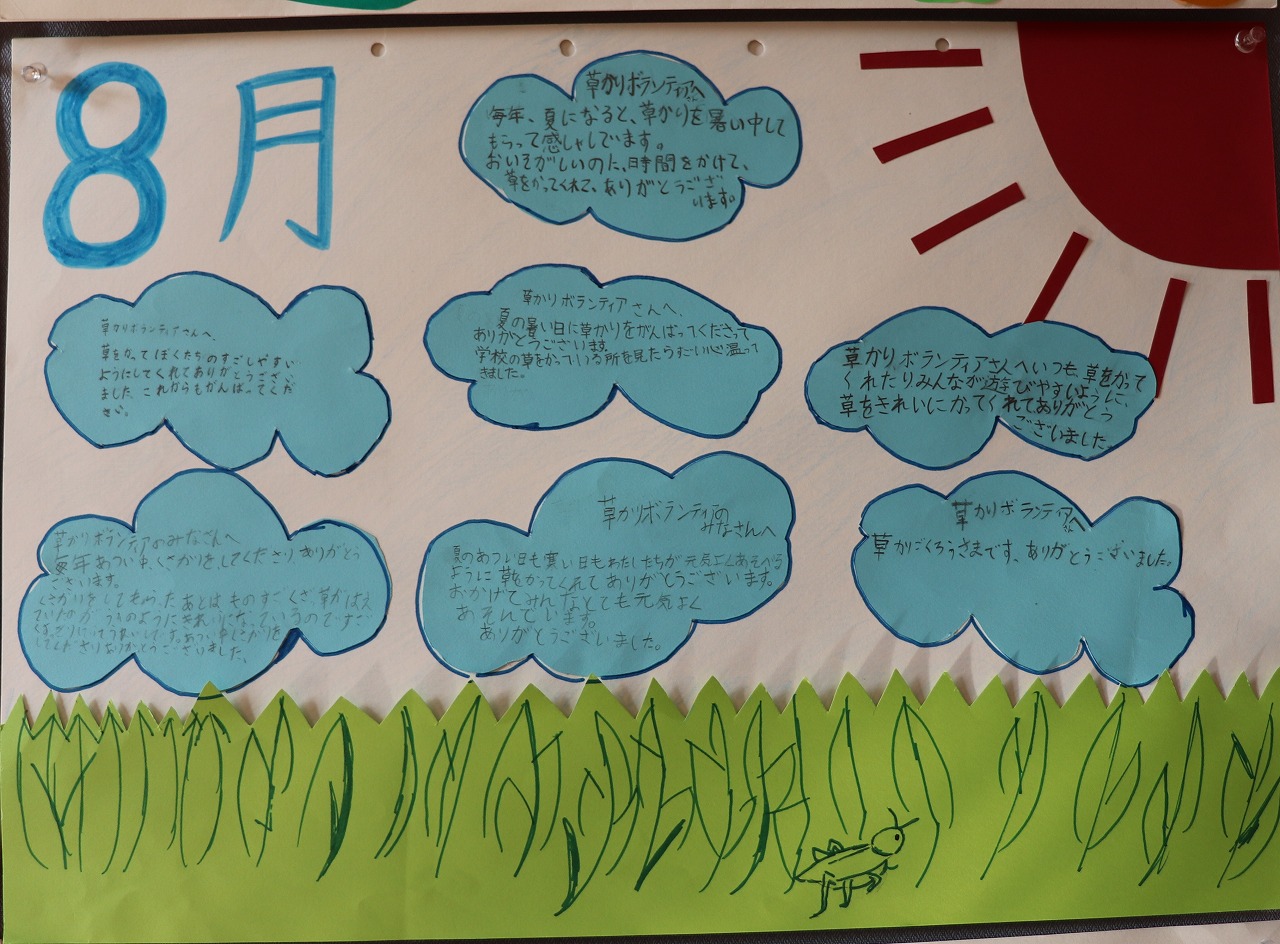 8月
草かりボランティアさんへ
毎年、夏になると、草かりを暑い中して
もらって感しゃしています。
おいそがしいのに、時間をかけて、
草をかってくれて、ありがとうござ
います。
草かりボランティアさんへ
草をかってぼくたちのすごしやすい
ようにしてくれてありがとうござい
ました。これからもがんばってくだ
さい。
草かりボランティアさんへ、
夏の暑い日に草かりをがんばってくださって
ありがとうございます。
学校の草をかっている所を見たらすごい心温って
きました。
草かりボランティアさんへいつも、草をかって
くれたりみんなが遊びやすいように、
草をきれいにかってくれてありがとう
ございました。
草かりボランティアのみなさんへ
毎年あつい中、くさかりをしてくださりありがとう
ございます。
くさかりをしてもらったあとはものすごくざっ草がはえ
ていたのがうそのようにきれいになっているのですご
あつい中くさかりを
してくださりありがとうございました。
草かりボランティアの
みなさんへ
夏のあつい日も寒い日もわたしたちが元気よくあそべる
ように草をかってくれてありがとうございます。
おかげでみんなとても元気よく
あそんでいます。
ありがとうございました。
草かりボランティアへ
草かりごくろうさまです、ありがとうございました。